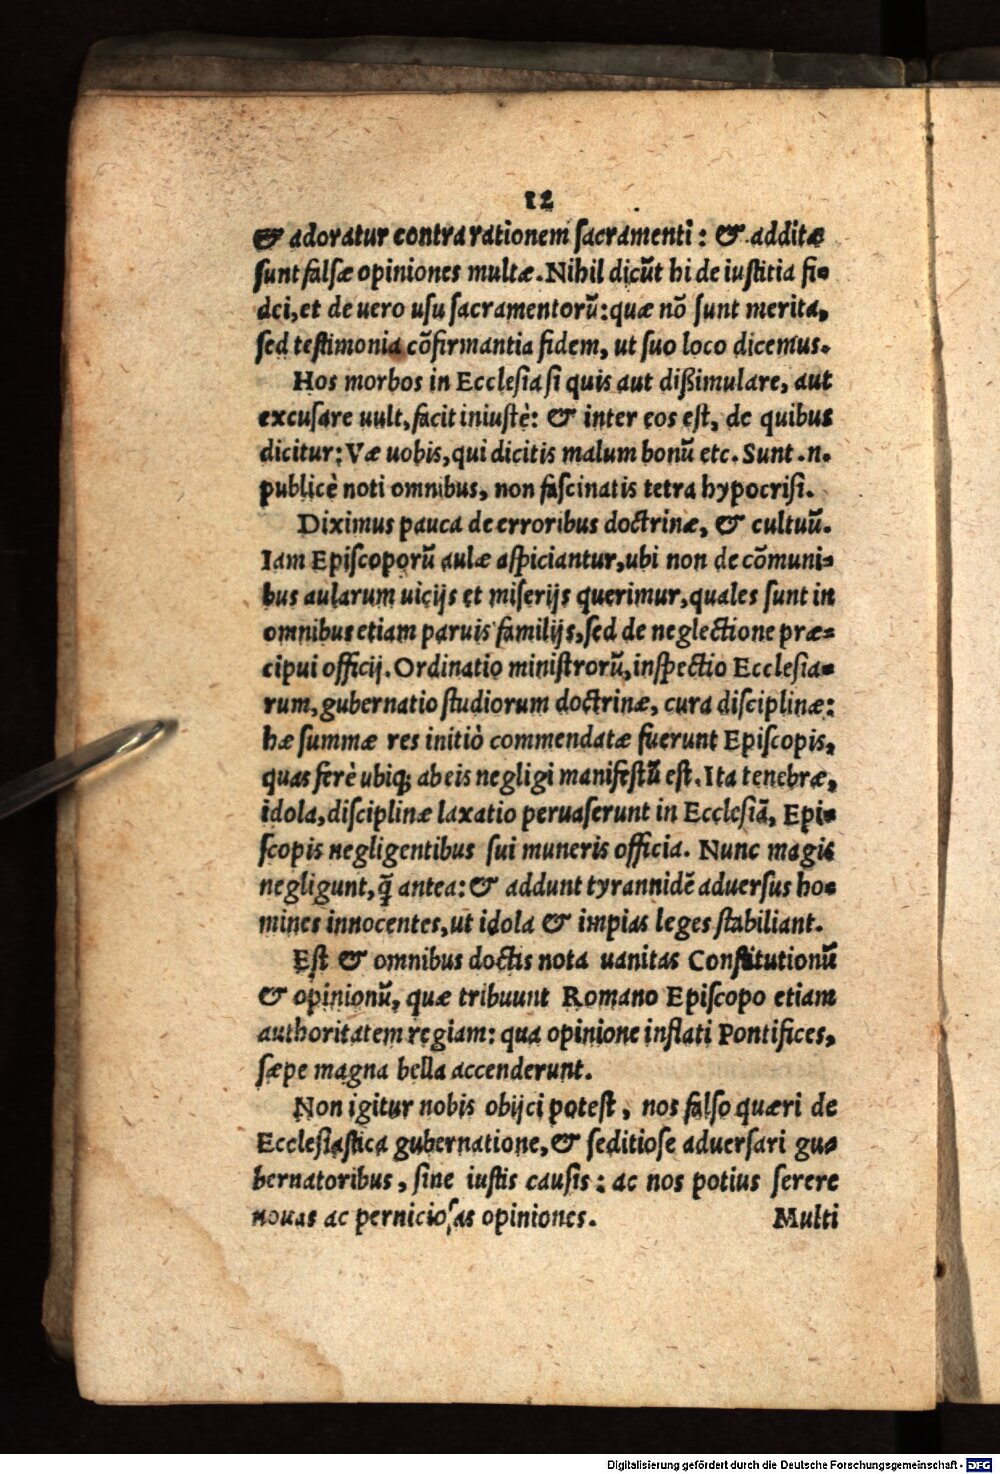 12
& adoratur contra rationem sacramenti: & additæ
sunt falsæ opiniones multæ. Nihil dicũt hi de iustitia fi-
dei, et de uero usu sacramentorũ: quæ nõ sunt merita,
sed testimonia cõfirmantia fidem, ut suo loco dicemus.
Hos morbos in Ecclesia si quis aut dißimulare, aut
excusare uult, facit iniustè: & inter eos est, de quibus
dicitur: Væ uobis, qui dicitis malum bonũ etc. Sunt .n.
publicè noti omnibus, non fascinatis tetra hypocrisi.
Diximus pauca de erroribus doctrinæ, & cultuũ.
Iam Episcoporũ aulæ aspiciantur, ubi non de cõmuni-
bus aularum uicijs et miserijs querimur, quales sunt in
omnibus etiam paruis familijs, sed de neglectione præ-
cipui officij. Ordinatio ministrorũ, inspectio Ecclesia-
rum, gubernatio studiorum doctrinæ, cura disciplinæ:
hæ summæ res initiò commendatæ fuerunt Episcopis,
quas ferè ubiq; ab eis negligi manifestũ est. Ita tenebræ,
idola, disciplinæ laxatio peruaserunt in Ecclesiã, Epi-
scopis negligentibus sui muneris officia. Nunc magis
negligunt, q̃ antea: & addunt tyrannidẽ aduersus ho-
mines innocentes, ut idola & impias leges stabiliant.
Est & omnibus doctis nota uanitas Constitutionũ
& opinionũ, quæ tribuunt Romano Episcopo etiam
authoritatem regiam: qua opinione inflati Pontifices,
sæpe magna bella accenderunt.
Non igitur nobis obijci potest, nos falso quæri de
Ecclesiastica gubernatione, & seditiose aduersari gu-
bernatoribus, sine iustis causis: ac nos potius serere
nouas ac perniciosas opiniones. Multi
Digitalisierung gefördert durch die Deutsche Forschungsgemeinschaft - DFG